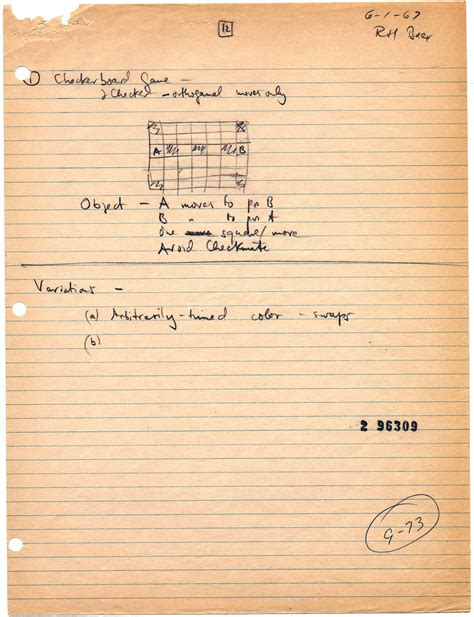 12
6-1-67
RH Baer
1) Checkerboard Game -
2 Checked - orthogonal moves only
A B
Object - A moves to pos B
B " to pos A
One square/move
Avoid Checkmate
Variations -
(a) Arbitrarily-timed color - swaps
(b)
2 96309
9-73